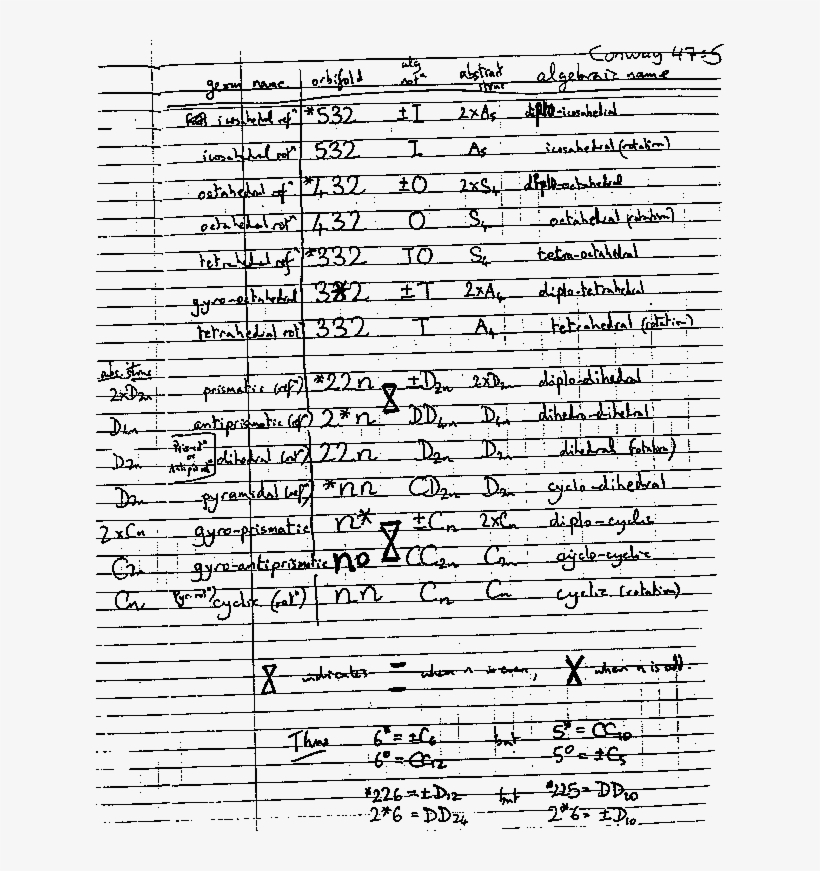 Conway 47-5
geom name orbifold alg notⁿ abstract struc algebraic name
icosahedral refⁿ *532 ±I 2×A₅ diplo-icosahedral
icosahedral rotⁿ 532 I A₅ icosahedral (rotation)
octahedral refⁿ *432 ±O 2×S₄ diplo-octahedral
octahedral rotⁿ 432 O S₄ octahedral (rotation)
tetrahedral refⁿ *332 TO S₄ tetra-octahedral
gyro-octahedral 3*2 ±T 2×A₄ diplo-tetrahedral
tetrahedral rotⁿ 332 T A₄ tetrahedral (rotation)
abs. struc
2×D₂ₙ prismatic (ref) *22n ±D₂ₙ 2×D₂ₙ diplo-dihedral
D₄ₙ antiprismatic (ref) 2*n DD₄ₙ D₄ₙ dihedro-dihedral
D₂ₙ Prismⁿ or Antiprismⁿ dihedral (rotⁿ) 22n D₂ₙ D₂ₙ dihedral (rotation)
D₂ₙ pyramidal (ref) *nn CD₂ₙ D₂ₙ cyclo-dihedral
2×Cₙ gyro-prismatic n* ±Cₙ 2×Cₙ diplo-cyclic
C₂ₙ gyro-antiprismatic no CC₂ₙ C₂ₙ cyclo-cyclic
Cₙ Pyr-rotⁿ/cyclic (rotⁿ) nn Cₙ Cₙ cyclic (rotation)
indicates = when n is even, X when n is odd.
Thus 6* = ±C₆ but 5* = CC₁₀
6° = CC₁₂ 5° = ±C₅
*226 = ±D₁₂ but *225 = DD₂₀
2*6 = DD₂₄ 2*6 = ±D₁₀